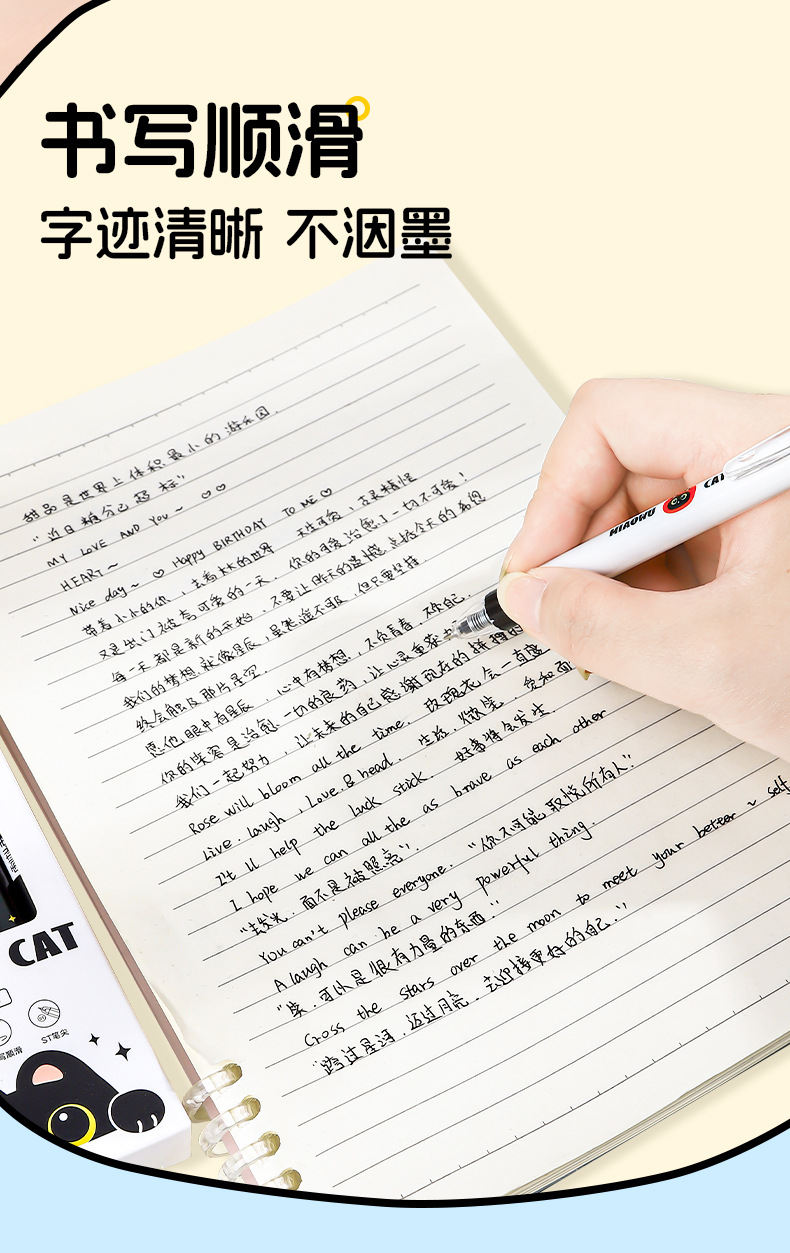 书写顺滑
字迹清晰 不洇墨
甜品是世界上体积最小的游乐园.
"近日糖分已超标"
MY LOVE AND You~ ♡♡
HEART~
Happy BIRTHDAY TO ME ♡
Nice day~ ♡
带着小小的你，去看大大的世界
天生可爱，古灵精怪
又是出门被夸可爱的一天.
你的可爱治愈了一切不可爱！
每一天都是新的开始，不要让昨天的遗憾，点燃今天的希望
我们的梦想就像星辰，虽然遥不可及，但只要坚持
终会触及那片星空.
愿他眼中有星辰，心中有梦想，不负青春，不负自己.
你的笑容是治愈一切的良药，让心灵重获
我们一起努力，让未来的自己感谢现在的拼搏
Rose will bloom all the time. 玫瑰花会一直盛
Live. laugh, Love. & head. 生活，微笑，爱和
It ll help the luck stick. 好事将会发生.
I hope we can all the as brave as each other
"去发光，而不是被照亮".
You can't please everyone. "你不可能取悦所有人".
A laugh can be a very powerful thing.
"笑，可以是很有力量的东西."
Cross the stars over the moon to meet your better ~ self
"跨过星河，迈过月亮，去迎接更好的自己."
MIAOWU CAT
CAT
写顺滑
ST笔尖